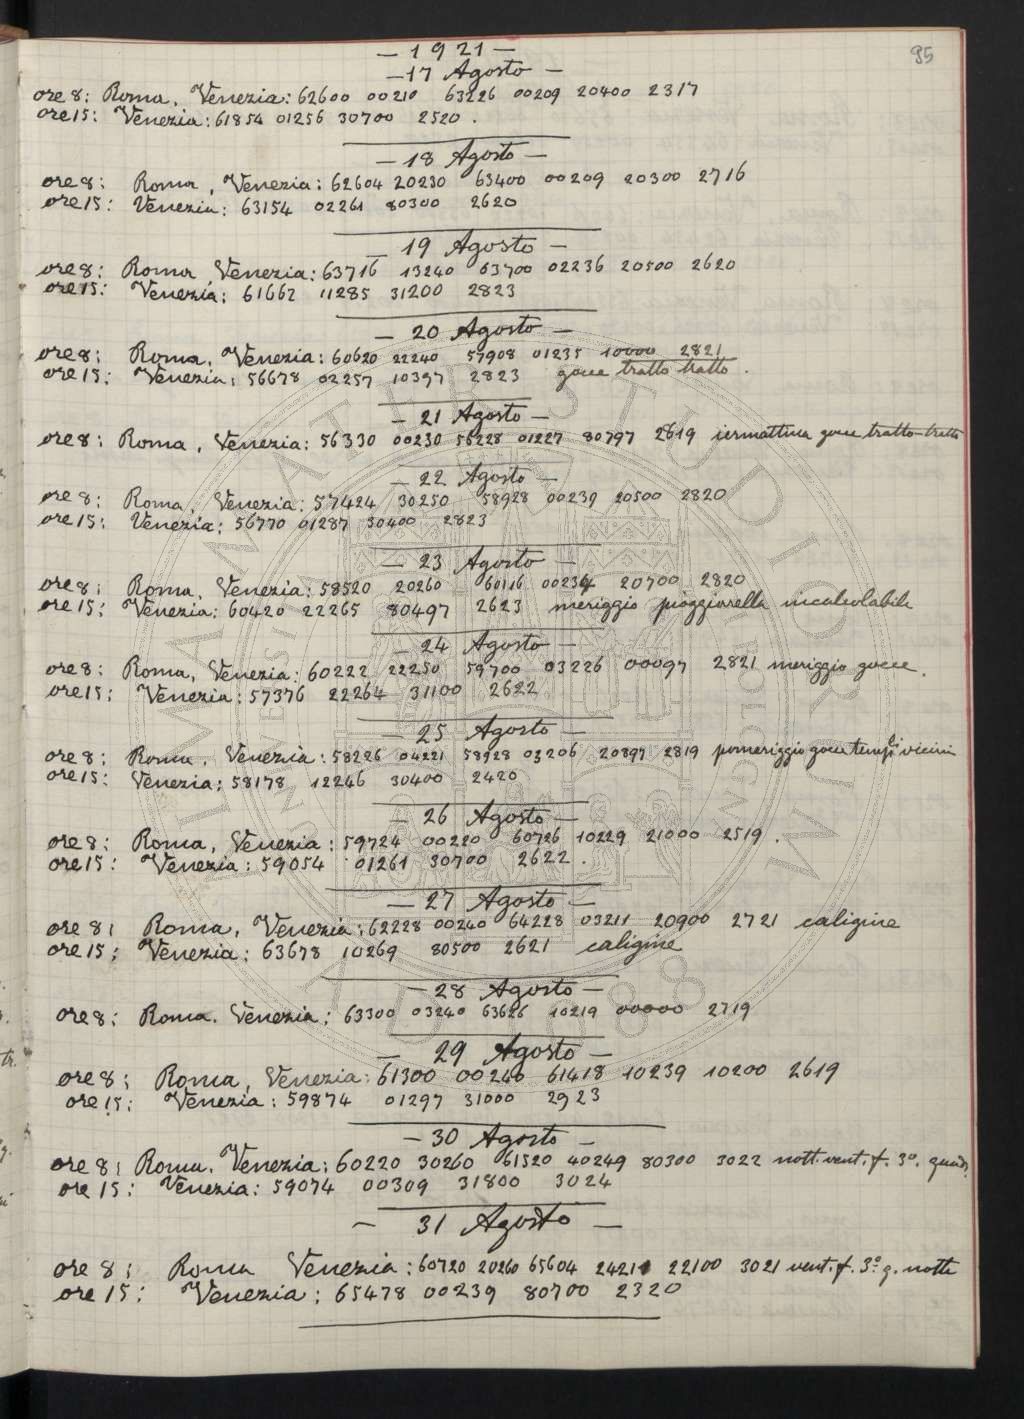 95
— 1921 —
— 17 Agosto —
ore 8: Roma, Venezia: 62600 00210 63226 00209 20400 2317
ore 15: Venezia: 61854 01256 30700 2520.
— 18 Agosto —
ore 8: Roma, Venezia: 62604 20230 63400 00209 20300 2716
ore 15: Venezia: 63154 02261 80300 2620
— 19 Agosto —
ore 8: Roma, Venezia: 63716 13240 63700 02236 20500 2620
ore 15: Venezia: 61662 11285 31200 2823
— 20 Agosto —
ore 8: Roma, Venezia: 60620 22240 57908 01235 10000 2821
ore 15: Venezia: 56678 02257 10397 2823 gocce tratto tratto.
— 21 Agosto —
ore 8: Roma, Venezia: 56330 00230 56228 01227 80797 2619 iermattina gocce tratto-tratto
— 22 Agosto —
ore 8: Roma, Venezia: 57424 30250 58928 00239 20500 2820
ore 15: Venezia: 56770 01287 30400 2823
— 23 Agosto —
ore 8: Roma, Venezia: 58520 20260 60116 00234 20700 2820
ore 15: Venezia: 60420 22265 80497 2623 meriggio pioggiarella incalcolabile
— 24 Agosto —
ore 8: Roma, Venezia: 60222 22250 59700 03226 00097 2821 meriggio gocce.
ore 15: Venezia: 57376 22264 31100 2622
— 25 Agosto —
ore 8: Roma, Venezia: 58226 04221 58928 03206 20897 2819 pomeriggio gocce temp. vicini
ore 15: Venezia: 58178 12246 30400 2420
— 26 Agosto —
ore 8: Roma, Venezia: 59724 00220 60726 10229 21000 2519.
ore 15: Venezia: 59054 01261 30700 2622.
— 27 Agosto —
ore 8: Roma, Venezia: 62228 00240 64228 03211 20900 2721 caligine
ore 15: Venezia: 63678 10269 80500 2621 caligine
— 28 Agosto —
ore 8: Roma. Venezia: 63300 03240 63626 10219 00000 2719
— 29 Agosto —
ore 8: Roma, Venezia: 61300 00240 61418 10239 10200 2619
ore 15: Venezia: 59874 01297 31000 2923
— 30 Agosto —
ore 8: Roma. Venezia: 60220 30260 61520 40249 80300 3022 nott. vent. f. 3º. quadr.
ore 15: Venezia: 59074 00309 31800 3024
— 31 Agosto —
ore 8: Roma Venezia: 60720 20260 65604 24211 22100 3021 vent. f. 3º q. notte
ore 15: Venezia: 65478 00239 80700 2320